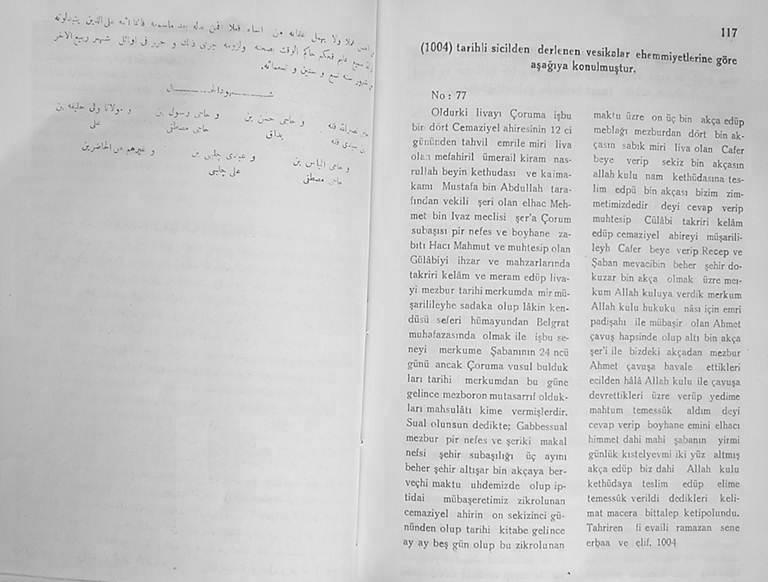 شهود الحال
و حاجى حسن بن
و حاجى رسول بن
و مولانا ولى خليفه بن
حاجى مصطفى
على
و حاجى الياس بن
و عبدى چلبى بن
و غيرهم من الحاضرين
حاجى مصطفى
على چلبى
117
(1004) tarihli sicilden derlenen vesikalar ehemmiyetlerine göre
aşağıya konulmuştur.
No : 77
Oldurki livayı Çoruma işbu
bin dört Cemaziyel ahiresinin 12 ci
gününden tahvil emrile miri liva
olan mefahiril ümerail kiram nas-
rullah beyin kethudası ve kaima-
kamı Mustafa bin Abdullah tara-
fından vekili şeri olan elhac Meh-
met bin Ivaz meclisi şer'a Çorum
subaşısı pir nefes ve boyhane za-
bıtı Hacı Mahmut ve muhtesip olan
Gülâbiyi ihzar ve mahzarlarında
takriri kelâm ve meram edüp liva-
yi mezbur tarihi merkumda mir mü-
şarilileyhe sadaka olup lâkin ken-
düsü seferi hümayundan Belgrat
muhafazasında olmak ile işbu se-
neyi merkume Şabanının 24 ncü
günü ancak Çoruma vusul bulduk
ları tarihi merkumdan bu güne
gelince mezboron mutasarrıf olduk-
ları mahsulâtı kime vermişlerdir.
Sual olunsun dedikte; Gabbessual
mezbur pir nefes ve şeriki makal
nefsi şehir subaşılığı üç ayını
beher şehir altışar bin akçaya ber-
veçhi maktu uhdemizde olup ip-
tidai mübaşeretimiz zikrolunan
cemaziyel ahirin on sekizinci gü-
nünden olup tarihi kitabe gelince
ay ay beş gün olup bu zikrolunan
maktu üzre on üç bin akça edüp
meblağı mezburdan dört bin ak-
çasın sabık miri liva olan Cafer
beye verip sekiz bin akçasın
allah kulu nam kethüdasına tes-
lim edpü bin akçası bizim zim-
metimizdedir deyi cevap verip
muhtesip Cülâbi takriri kelâm
edüp cemaziyel ahireyi müşarili-
leyh Cafer beye verip Recep ve
Şaban mevacibin beher şehir do-
kuzar bin akça olmak üzre mer-
kum Allah kuluya verdik merkum
Allah kulu hukuku nâsı için emri
padişahı ile mübaşir olan Ahmet
çavuş hapsinde olup altı bin akça
şer'i ile bizdeki akçadan mezbur
Ahmet çavuşa havale ettikleri
ecilden hâlâ Allah kulu ile çavuşa
devrettikleri üzre verüp yedime
mahtum temessük aldım deyi
cevap verip boyhane emini elhacı
himmet dahi mahi şabanın yirmi
günlük kıstelyevmi iki yüz altmış
akça edüp biz dahi Allah kulu
kethüdaya teslim edüp elime
temessük verildi dedikleri keli-
mat macera bittalep ketipolundu.
Tahriren fi evaili ramazan sene
erbaa ve elif. 1004